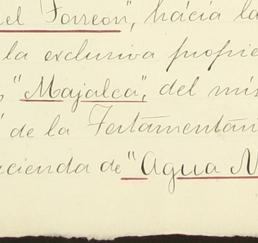 el Torreon", hácia la
la exclusiva propie
"Majalca", del mis
de la Testamentan
cienda de "Agua N